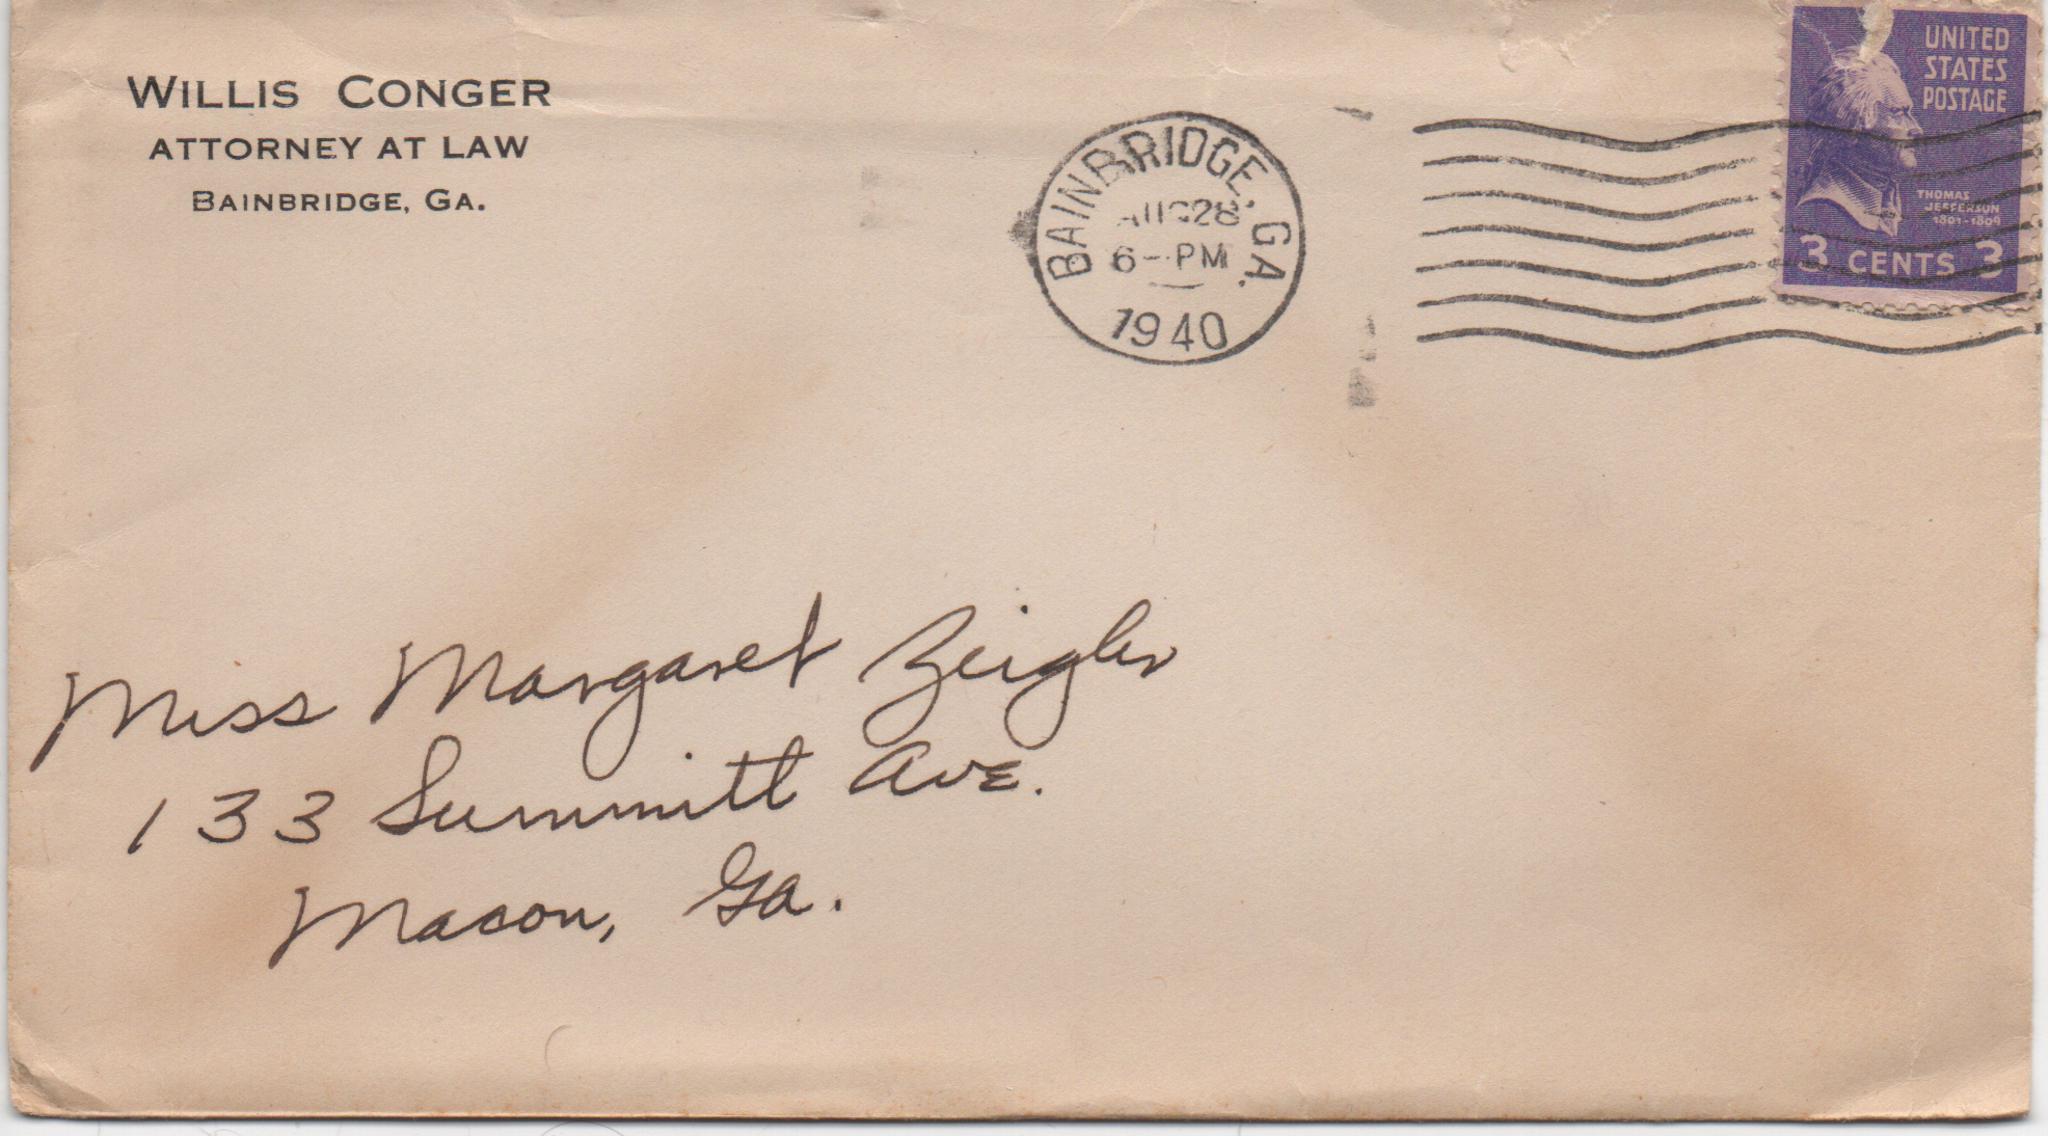 WILLIS CONGER
ATTORNEY AT LAW
BAINBRIDGE, GA.
BAINBRIDGE, GA.
AUG 28
6-PM
1940
UNITED
STATES
POSTAGE
THOMAS
JEFFERSON
1801-1809
3 CENTS 3
Miss Margaret Zeigler
133 Summitt Ave.
Macon, Ga.